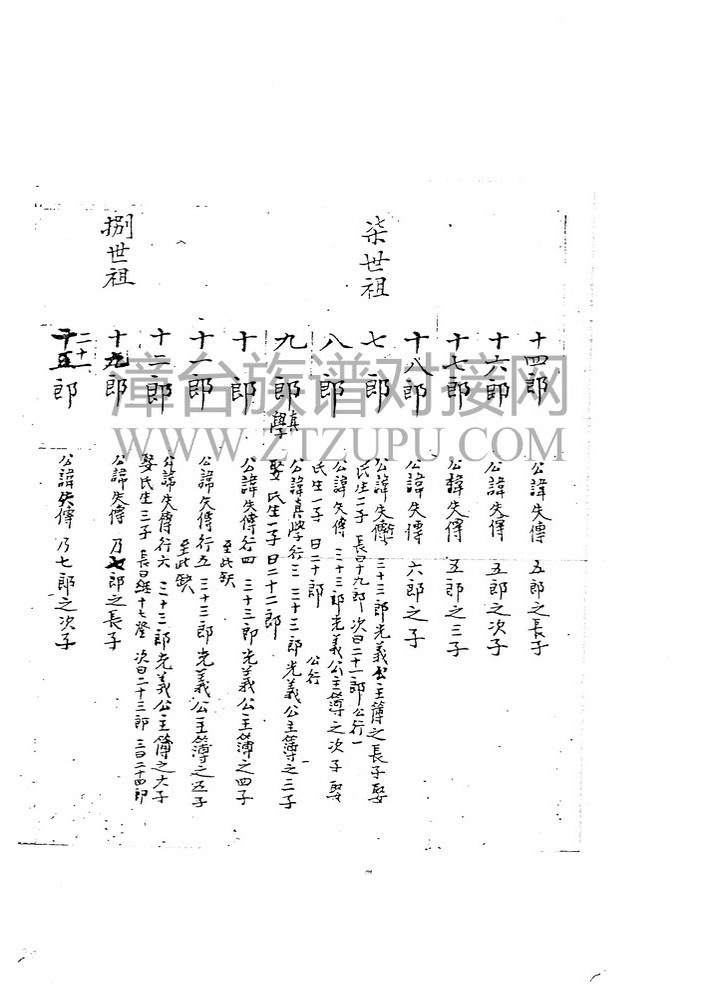 十四郎
公諱失傳 五郎之長子
十六郎
公諱失傳 五郎之次子
十七郎
公諱失傳 五郎之三子
十八郎
公諱失傳 六郎之子
柒世祖
七郎
公諱失傳 三十三郎光義公主簿之長子娶
氏生二子 長曰十九郎 次曰二十一郎 公行一
八郎
公諱失傳 三十三郎光義公主簿之次子 娶
氏生一子 曰二十郎 公行
九郎 真學
公諱真學行三 三十三郎光義公主簿之三子
娶氏生一子曰二十二郎
十郎
公諱失傳行四 三十三郎光義公主簿之四子
至此缺
十一郎
公諱失傳行五 三十三郎光義公主簿之五子
至此缺
十二郎
公諱失傳行六 三十三郎光義公主簿之六子
娶氏生三子 長曰十七 次曰二十三郎 三曰二十四郎
捌世祖
十九郎
公諱失傳 乃七郎之長子
二十一郎
公諱失傳 乃七郎之次子
漳台族谱对接网
WWW.ZTZUPU.COM